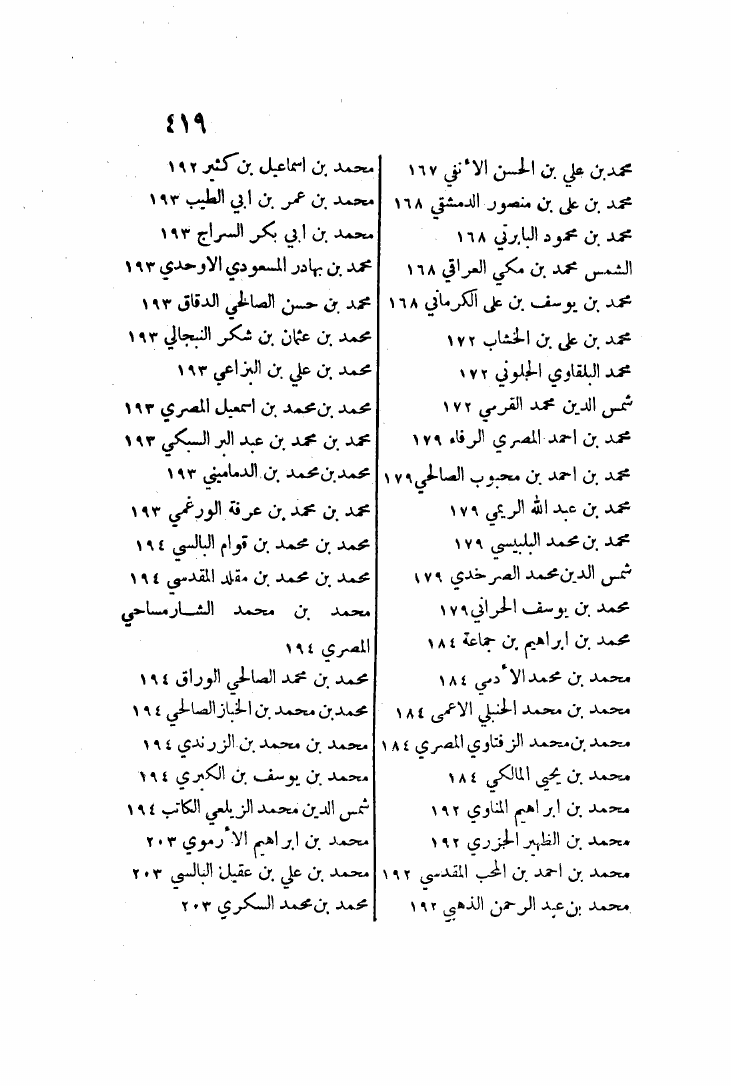 ٤١٩
محمد بن علي بن الحسن الأنفي ١٦٧
محمد بن علي بن منصور الدمشقي ١٦٨
محمد بن محمود البابرتي ١٦٨
الشمس محمد بن مكي العراقي ١٦٨
محمد بن يوسف بن علي الكرماني ١٦٨
محمد بن علي بن الخشاب ١٧٢
محمد البلقاوي الجلوني ١٧٢
شمس الدين محمد القرمي ١٧٢
محمد بن احمد المصري الرفاء ١٧٩
محمد بن احمد بن محبوب الصالحي ١٧٩
محمد بن عبد الله الريمي ١٧٩
محمد بن محمد البلبيسي ١٧٩
شمس الدين محمد الصرخدي ١٧٩
محمد بن يوسف الحراني ١٧٩
محمد بن ابراهيم بن جماعة ١٨٤
محمد بن محمد الأدمي ١٨٤
محمد بن محمد الحنبلي الاعمى ١٨٤
محمد بن محمد الزفتاوي المصري ١٨٤
محمد بن يحيى المالكي ١٨٤
محمد بن ابراهيم المناوي ١٩٢
محمد بن الظهير الجزري ١٩٢
محمد بن احمد بن المحب المقدسي ١٩٢
محمد بن عبد الرحمن الذهبي ١٩٢
محمد بن اسماعيل بن كثير ١٩٢
محمد بن عمر بن ابي الطيب ١٩٣
محمد بن ابي بكر السراج ١٩٣
محمد بن بهادر المسعودي الاوحدي ١٩٣
محمد بن حسن الصالحي الدقاق ١٩٣
محمد بن عثمان بن شكر النبحالي ١٩٣
محمد بن علي بن البزاعي ١٩٣
محمد بن محمد بن اسمعيل المصري ١٩٣
محمد بن محمد بن عبد البر السبكي ١٩٣
محمد بن محمد بن الدماميني ١٩٣
محمد بن محمد بن عرفة الورغمي ١٩٣
محمد بن محمد بن قوام البالسي ١٩٤
محمد بن محمد بن مقلد المقدسي ١٩٤
محمد بن محمد الشارمساحي
المصري ١٩٤
محمد بن محمد الصالحي الوراق ١٩٤
محمد بن محمد بن الخباز الصالحي ١٩٤
محمد بن محمد بن الزرندي ١٩٤
محمد بن يوسف بن الكبري ١٩٤
شمس الدين محمد الزيلعي الكاتب ١٩٤
محمد بن ابراهيم الأرموي ٢٠٣
محمد بن علي بن عقيل البالسي ٢٠٣
محمد بن محمد السكري ٢٠٣